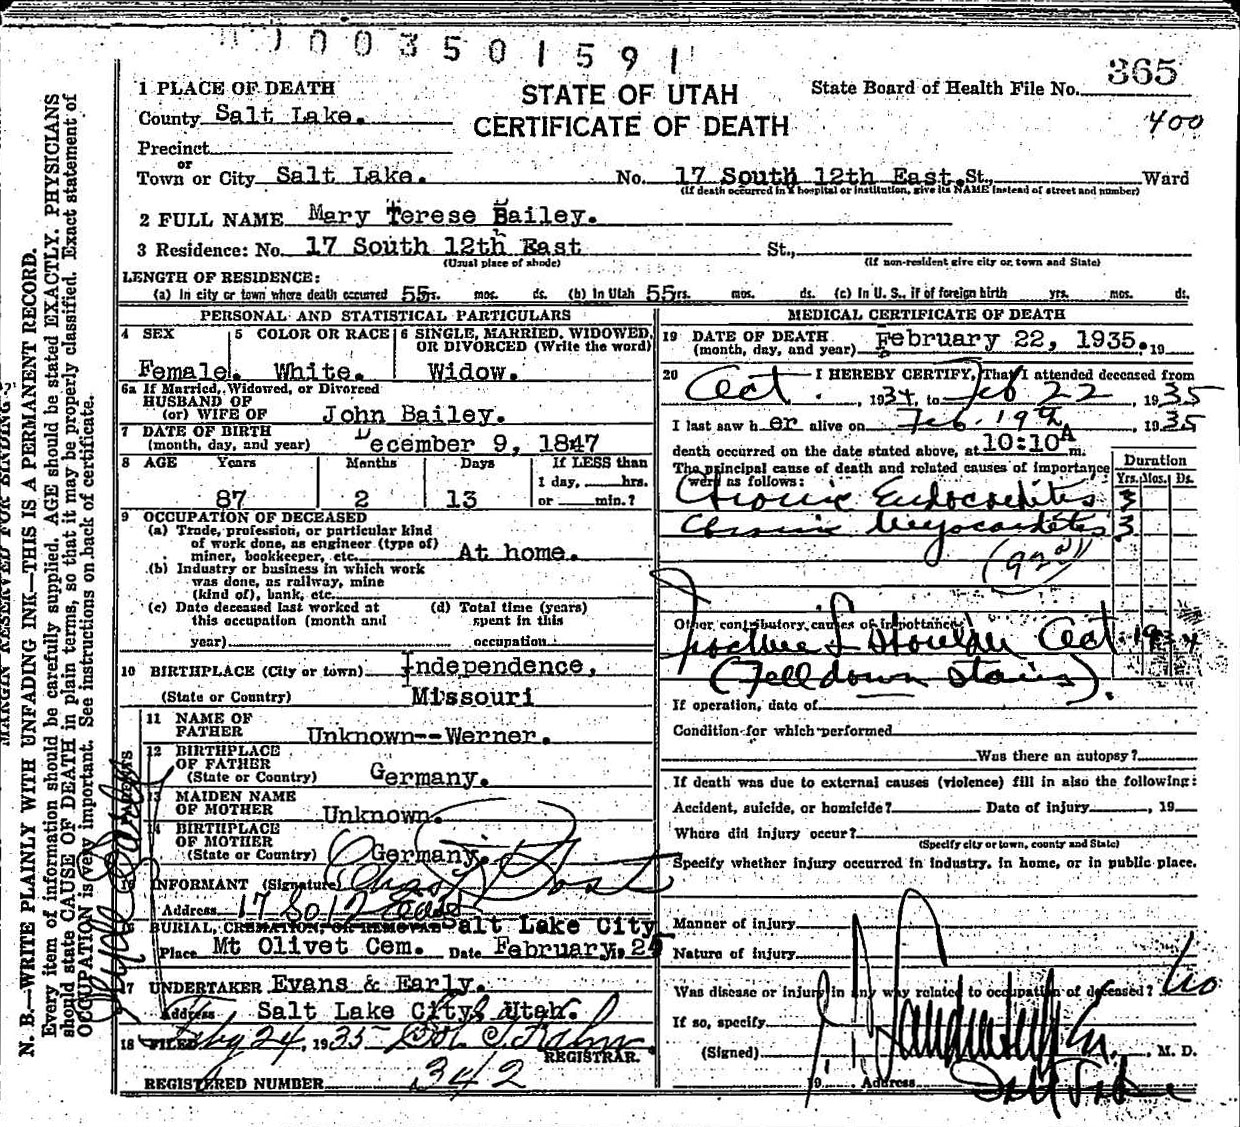 1003501591
365
1 PLACE OF DEATH
STATE OF UTAH
State Board of Health File No.
County Salt Lake.
CERTIFICATE OF DEATH
400
Precinct
or
Town or City Salt Lake. No. 17 South 12th East. St., Ward
(If death occurred in a hospital or institution, give its NAME instead of street and number)
2 FULL NAME Mary Terese Bailey.
3 Residence: No. 17 South 12th East St.,
(Usual place of abode) (If non-resident give city or town and State)
LENGTH OF RESIDENCE:
(a) In city or town where death occurred 55 yrs. mos. ds. (b) In Utah 55 yrs. mos. ds. (c) In U. S., if of foreign birth yrs. mos. ds.
PERSONAL AND STATISTICAL PARTICULARS
4 SEX 5 COLOR OR RACE 6 SINGLE, MARRIED, WIDOWED, OR DIVORCED (Write the word)
Female. White. Widow.
6a If Married, Widowed, or Divorced
HUSBAND OF
(or) WIFE OF John Bailey.
7 DATE OF BIRTH
(month, day, and year) December 9, 1847
8 AGE Years Months Days If LESS than
1 day, hrs.
87 2 13 or min.?
9 OCCUPATION OF DECEASED
(a) Trade, profession, or particular kind
of work done, as engineer (type of)
miner, bookkeeper, etc. At home.
(b) Industry or business in which work
was done, as railway, mine
(kind of), bank, etc.
(c) Date deceased last worked at (d) Total time (years)
this occupation (month and spent in this
year) occupation
10 BIRTHPLACE (City or town) Independence,
(State or Country) Missouri
11 NAME OF
FATHER Unknown--Werner.
12 BIRTHPLACE
OF FATHER
(State or Country) Germany.
13 MAIDEN NAME
OF MOTHER Unknown.
14 BIRTHPLACE
OF MOTHER
(State or Country) Germany.
INFORMANT (Signature) Chas
Address 17 So 12 East
BURIAL, CREMATION, OR REMOVAL Salt Lake City
Place Mt Olivet Cem. Date February, 25
17 UNDERTAKER Evans & Early.
Address Salt Lake City, Utah.
18 FILED 24, 1935
REGISTRAR.
REGISTERED NUMBER 342
MEDICAL CERTIFICATE OF DEATH
19 DATE OF DEATH
(month, day, and year) February 22, 1935. 19
20 I HEREBY CERTIFY, That I attended deceased from
Oct. , 1934, to Feb 22 , 1935
I last saw her alive on Feb. 19th , 1935
death occurred on the date stated above, at 10:10A m.
The principal cause of death and related causes of importance
were as follows:
Duration
Yrs. Mos. Ds.
Chronic Endocarditis 3
Chronic Myocarditis 3
Other contributory causes of importance
Fracture L Shoulder Oct 1934
(Fell down stairs).
If operation, date of
Condition for which performed
Was there an autopsy?
If death was due to external causes (violence) fill in also the following:
Accident, suicide, or homicide? Date of injury , 19
Where did injury occur?
(Specify city or town, county and State)
Specify whether injury occurred in industry, in home, or in public place.
Manner of injury
Nature of injury
Was disease or injury in any way related to occupation of deceased? No
If so, specify
(Signed) M. D.
19 Address Salt Lake
MARGIN RESERVED FOR BINDING
N. B.—WRITE PLAINLY WITH UNFADING INK—THIS IS A PERMANENT RECORD.
Every item of information should be carefully supplied. AGE should be stated EXACTLY. PHYSICIANS
should state CAUSE OF DEATH in plain terms, so that it may be properly classified. Exact statement of
OCCUPATION is very important. See instructions on back of certificate.